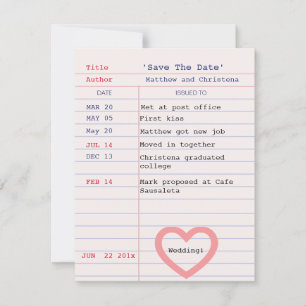 Title 'Save The Date'
Author Matthew and Christena
DATE ISSUED TO
MAR 20 Met at post office
MAY 05 First kiss
May 20 Matthew got new job
JUL 14 Moved in together
DEC 13 Christena graduated
college
FEB 14 Mark proposed at Cafe
Sausaleta
Wedding!
JUN 22 201x